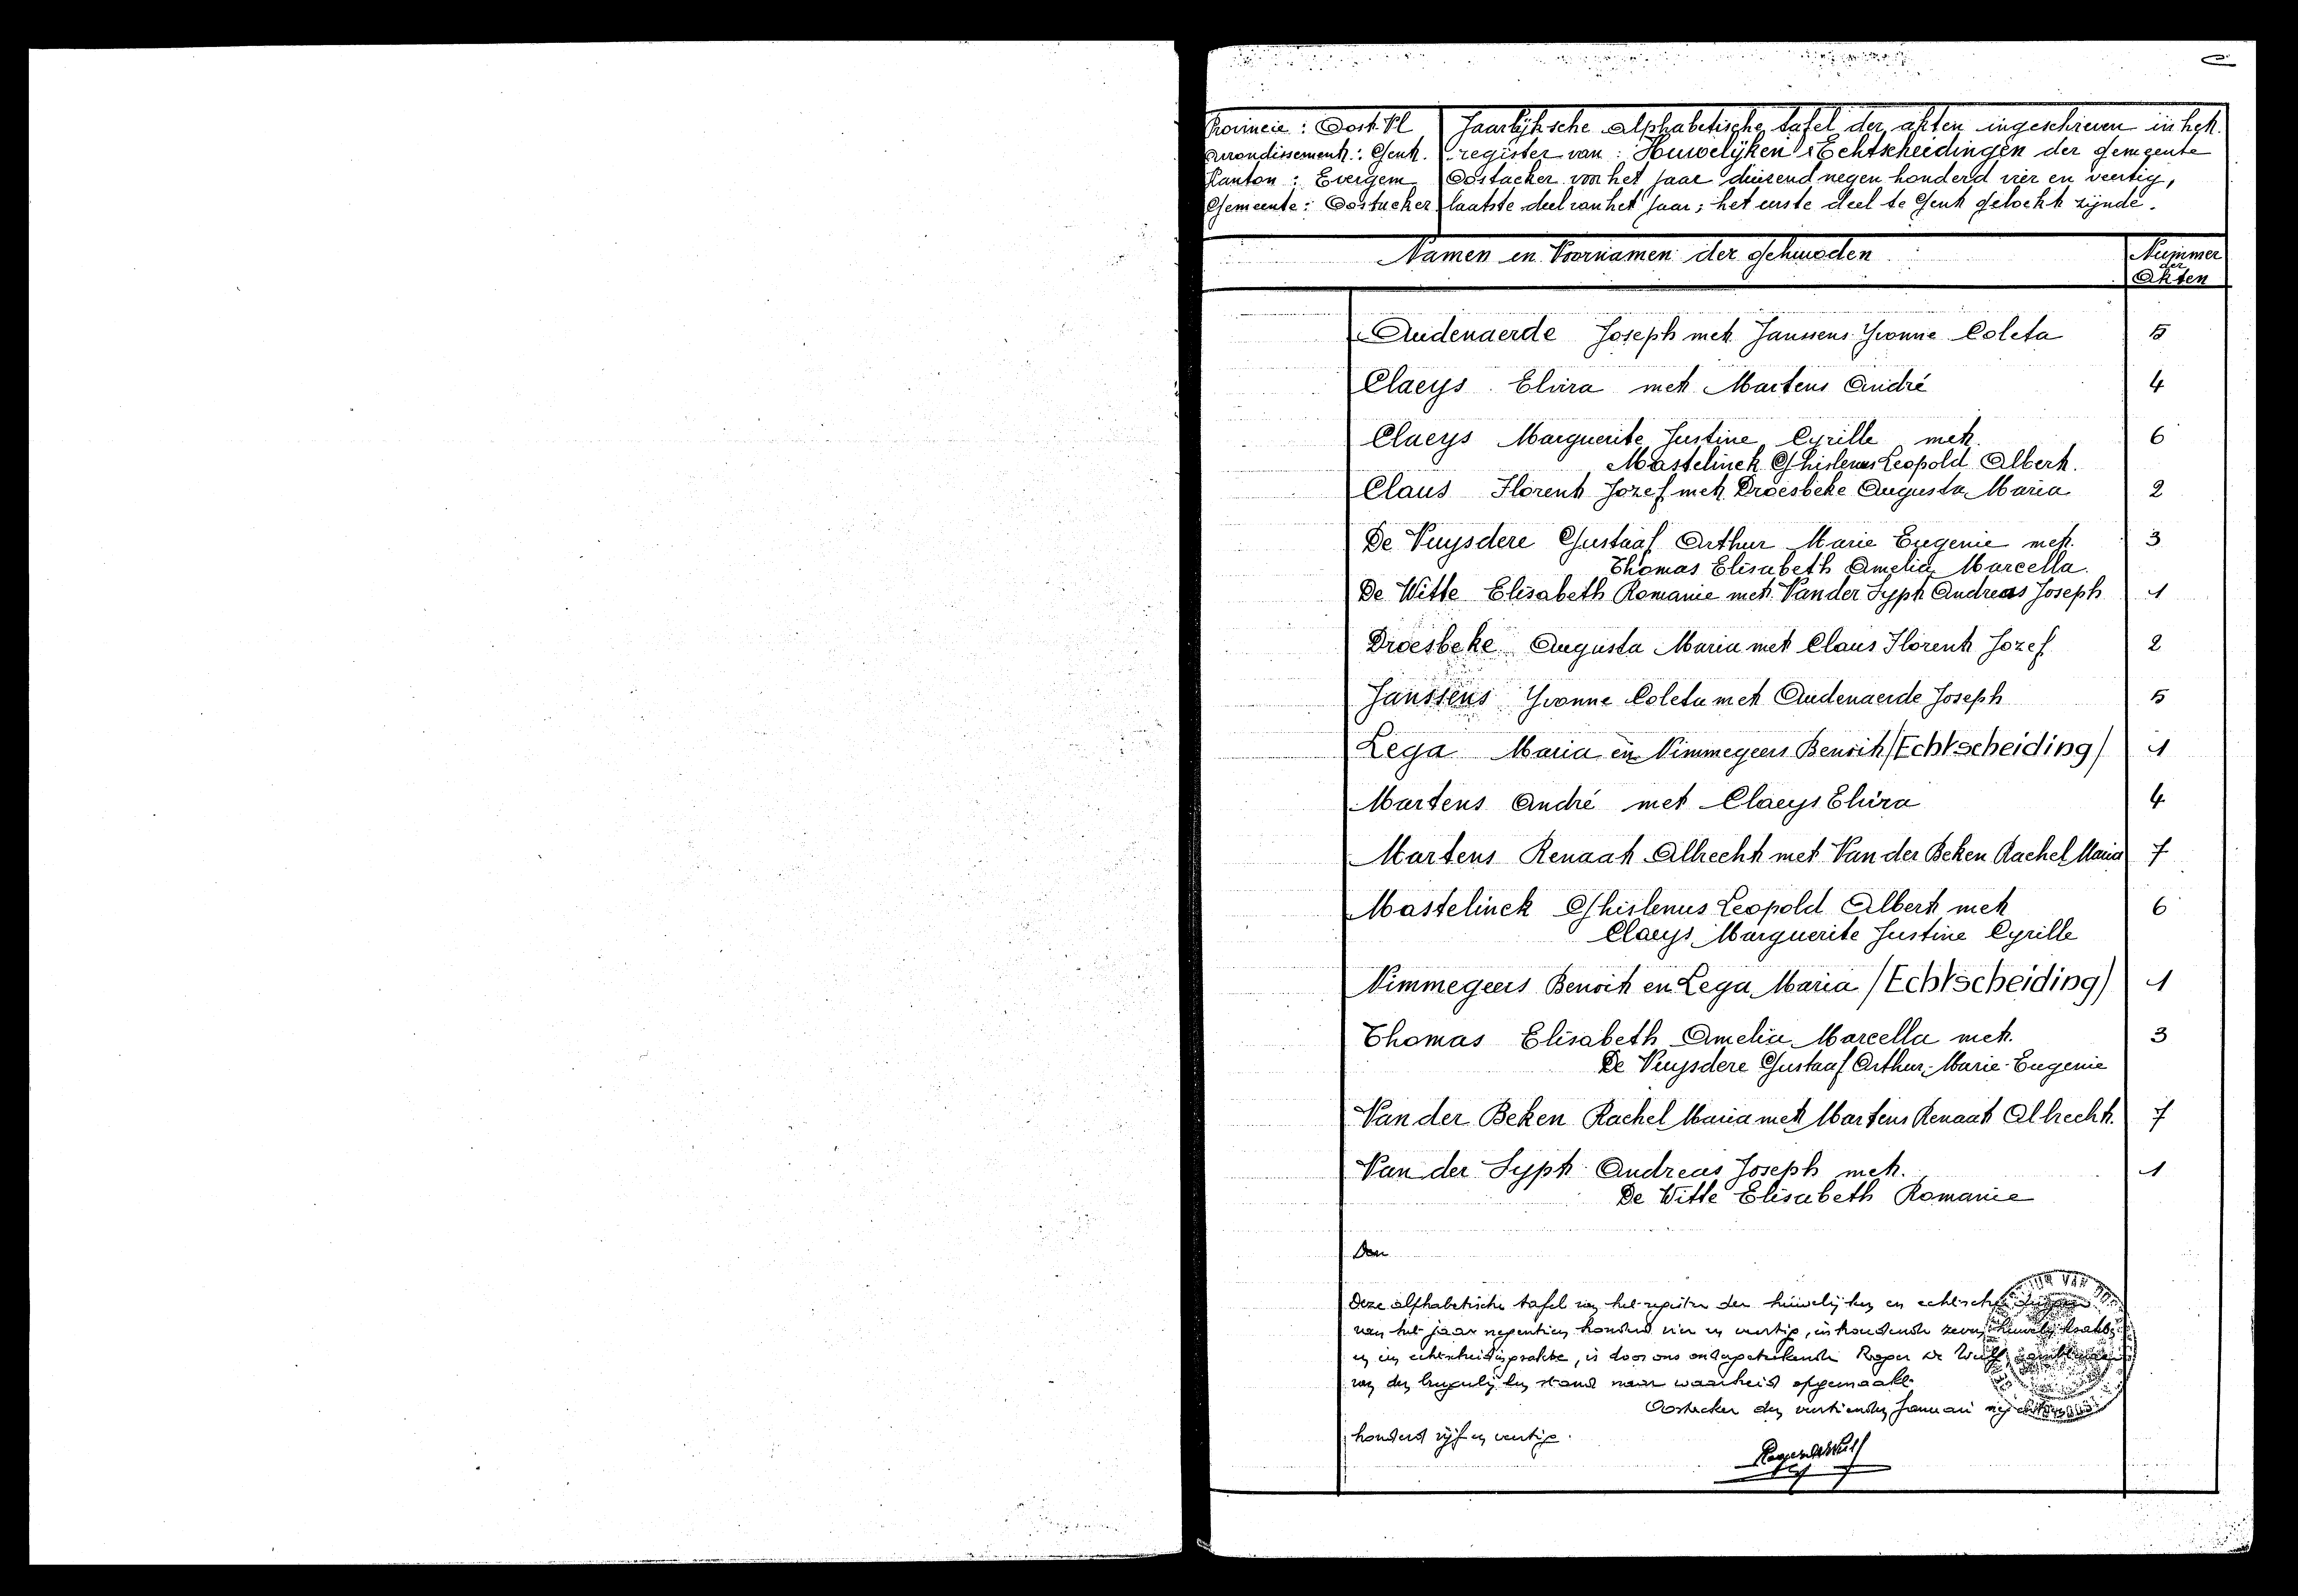 Provincie : Oost. Vl
Arrondissement : Gent.
Kanton : Evergem
Gemeente : Oostacker
Jaarlijksche alphabetische tafel der akten ingeschreven in het
register van : Huwelijken & Echtscheidingen der gemeente
Oostacker voor het jaar duizend negen honderd vier en veertig,
laatste deel van het jaar ; het eerste deel te Gent geboekt zijnde.
Namen en Voornamen der gehuwden
Nummer
der
Akten
Audenaerde Joseph met Janssens Yvonne Coleta 5
Claeys Elvira met Martens André 4
Claeys Marguerite Justine Cyrille met 6
Mastelinck Ghislenus Leopold Albert.
Claus Florent Jozef met Droesbeke Augusta Maria 2
De Vuysdere Gustaaf Arthur Marie Eugenie met 3
Thomas Elisabeth Amelia Marcella.
De Witte Elisabeth Romanie met Van der Sypt Andreas Joseph 1
Droesbeke Augusta Maria met Claus Florent Jozef 2
Janssens Yvonne Coleta met Audenaerde Joseph 5
Lega Maria en Nimmegeers Benoit /Echtscheiding/ 1
Martens André met Claeys Elvira 4
Martens Renaat Albrecht met Van der Beken Rachel Maria 7
Mastelinck Ghislenus Leopold Albert met 6
Claeys Marguerite Justine Cyrille
Nimmegeers Benoit en Lega Maria /Echtscheiding/ 1
Thomas Elisabeth Amelia Marcella met 3
De Vuysdere Gustaaf Arthur-Marie-Eugenie
Van der Beken Rachel Maria met Martens Renaat Albrecht. 7
Van der Sypt Andreas Joseph met 1
De Witte Elisabeth Romanie
Deze alphabetische tafel van het register der huwelijken en
van het jaar negentien honderd vier en veertig, inhoudende zeven
en een echtscheidingsakte, is door ons ondergeteekende Roger De Wulf,
van den burgerlijken stand naar waarheid opgemaakt.
Oostacker den veertienden Januari
honderd vijf en veertig.